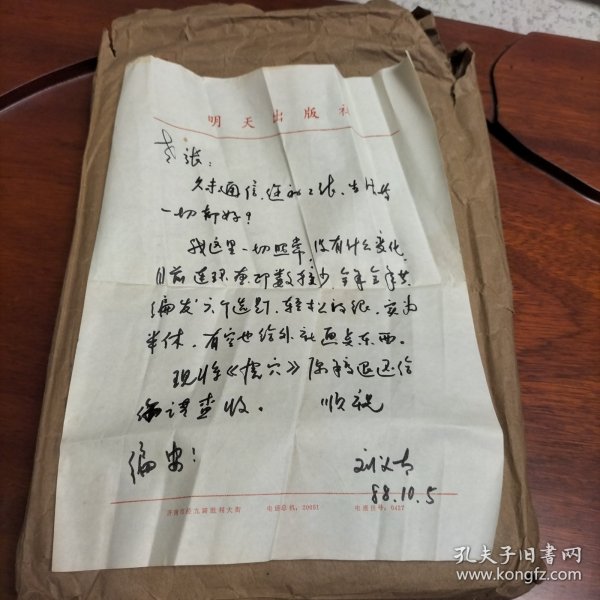 明天出版社
老张：
久未通信，近来工作、生活等
一切都好？
我这里一切照常，没有什么变化，
目前连环画印数较少，全年全年共
编发六个选题，轻松的很，实为
半休，有空也给外社画点东西。
现将《虎穴》原稿退还给
您请查收。 顺祝
编安！
88.10.5
济南市经九路胜利大街 电话总机：20051 电报挂号：0437
孔夫子旧书网
www.kongfz.com